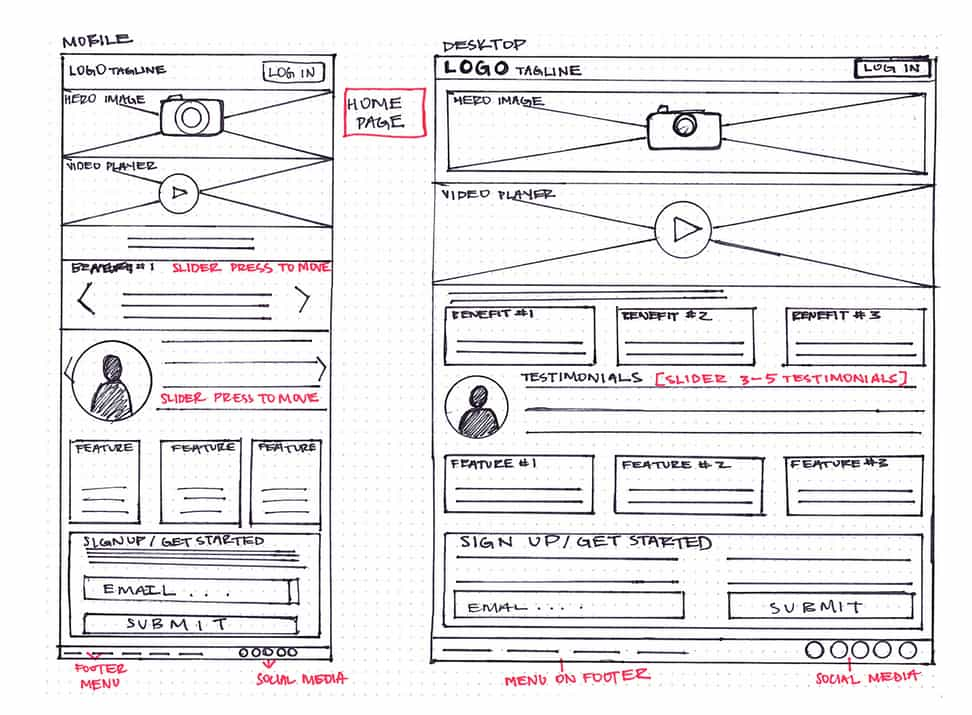 MOBILE
LOGO TAGLINE
LOG IN
HERO IMAGE
VIDEO PLAYER
BENEFIT #1 SLIDER PRESS TO MOVE
SLIDER PRESS TO MOVE
FEATURE FEATURE FEATURE
SIGN UP / GET STARTED
EMAIL . . . .
SUBMIT
FOOTER
MENU
SOCIAL MEDIA
HOME
PAGE
DESKTOP
LOGO TAGLINE
LOG IN
HERO IMAGE
VIDEO PLAYER
BENEFIT #1 BENEFIT #2 BENEFIT #3
TESTIMONIALS [SLIDER 3-5 TESTIMONIALS]
FEATURE #1 FEATURE #2 FEATURE #3
SIGN UP / GET STARTED
EMAL . . . .
SUBMIT
MENU ON FOOTER
SOCIAL MEDIA